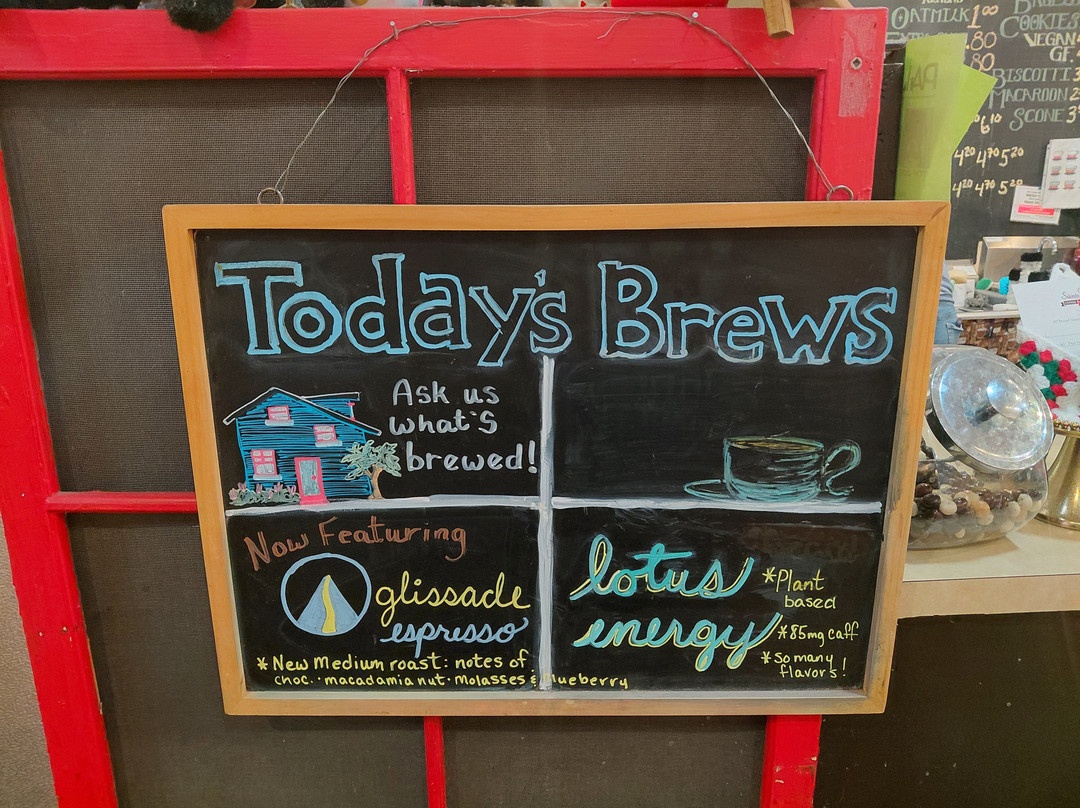 Today's Brews
Ask us
what's
brewed!
Now Featuring
glissade
espresso
*New Medium roast: notes of
choc. · macadamia nut · Molasses & lueberry
lotus
energy
*Plant
based
*85mg caff
*So many
flavors!
OATMILK 1.00
.80
.80
COOKIES
VEGAN
GF.
BISCOTTI 3
MACAROON 2
SCONE 3
610
420 470 520
420 470 520